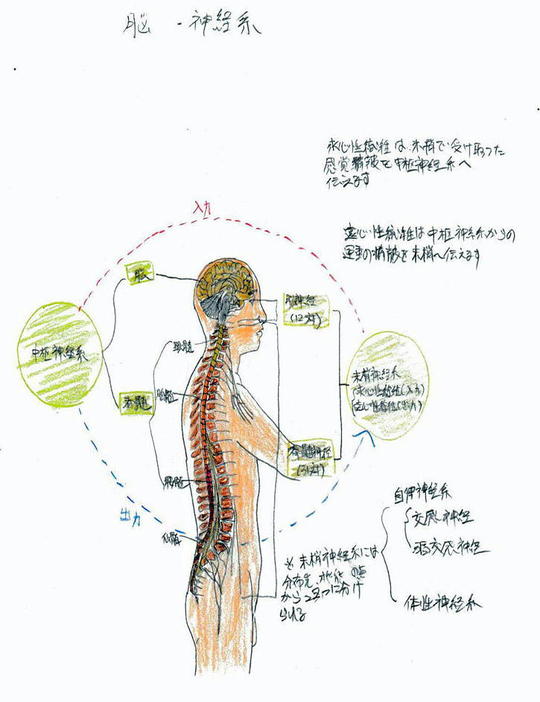 脳 ・神経系
求心性線維は末梢で受け取った
感覚情報を中枢神経系へ
伝えます
遠心性線維は中枢神経系からの
運動の情報を末梢へ伝えます
入力
脳
脳神経
(12対)
中枢神経系
頚髄
脊髄
胸髄
末梢神経系
(求心性線維(入力)
遠心性線維(出力)
脊髄神経
(31対)
腰髄
出力
仙髄
自律神経系
交感神経
副交感神経
体性神経系
※ 末梢神経系には
分布先、機能の点
から2つに分け
られる